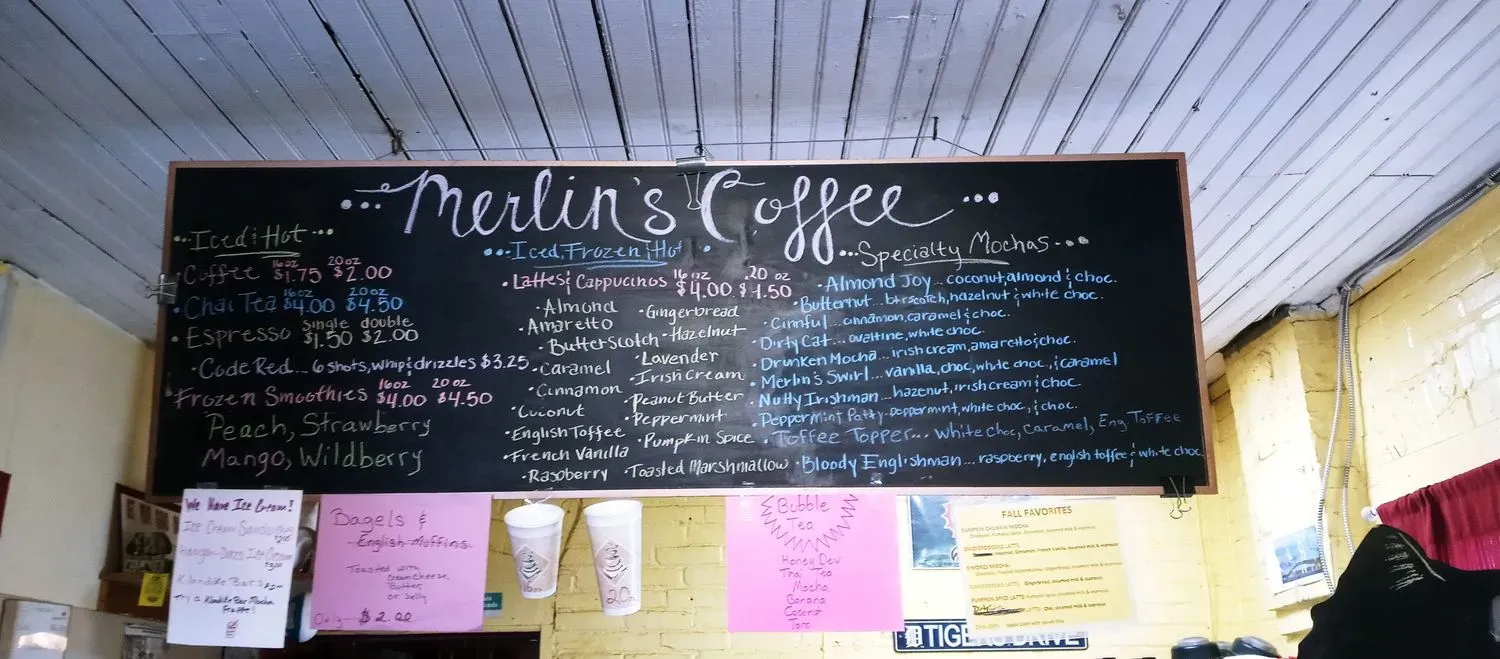 Merlin's Coffee
Iced & Hot
Coffee 16oz $1.75 20oz $2.00
Chai Tea 16oz $4.00 20oz $4.50
Espresso Single $1.50 double $2.00
Code Red... 6 shots, whip & drizzles $3.25
Frozen Smoothies 16oz $4.00 20oz $4.50
Peach, Strawberry
Mango, Wildberry
Iced, Frozen & Hot
Lattes & Cappucinos 16oz $4.00 20oz $4.50
Almond
Amaretto
Butterscotch
Caramel
Cinnamon
Coconut
English Toffee
French Vanilla
Raspberry
Gingerbread
Hazelnut
Lavender
Irish Cream
Peanut Butter
Peppermint
Pumpkin Spice
Toasted Marshmallow
Specialty Mochas
Almond Joy... coconut, almond & choc.
Butternut... btrscotch, hazelnut & white choc.
Cinnful... cinnamon, caramel & choc.
Dirty Cat... ovaltine, white choc.
Drunken Mocha... irish cream, amaretto & choc.
Merlin's Swirl... vanilla, choc, white choc., & caramel
Nutty Irishman... hazenut, irish cream & choc
Peppermint Patty-peppermint, white choc., & choc.
Toffee Topper... white choc, caramel, Eng. Toffee
Bloody Englishman... raspberry, english toffee & white choc
We Have Ice Cream!
Ice Cream Sandwiches
Haagen-Dazs Ice Cream
Klondike Bars
Try a Klondike Bar Mocha
Frappe!
Bagels &
English Muffins
Toasted with
cream cheese,
Butter,
or Jelly
Only $2.00
20oz
Bubble
Tea
Honey Dew
Thai Tea
Mocha
Banana
Coconut
Taro
FALL FAVORITES
PUMPKIN CHUNKIN MOCHA:
SNICKERDOODLE LATTE
S'MORES MOCHA:
GINGERBREAD LATTE:
PUMPKIN SPICE LATTE:
TIGERS DRIVE